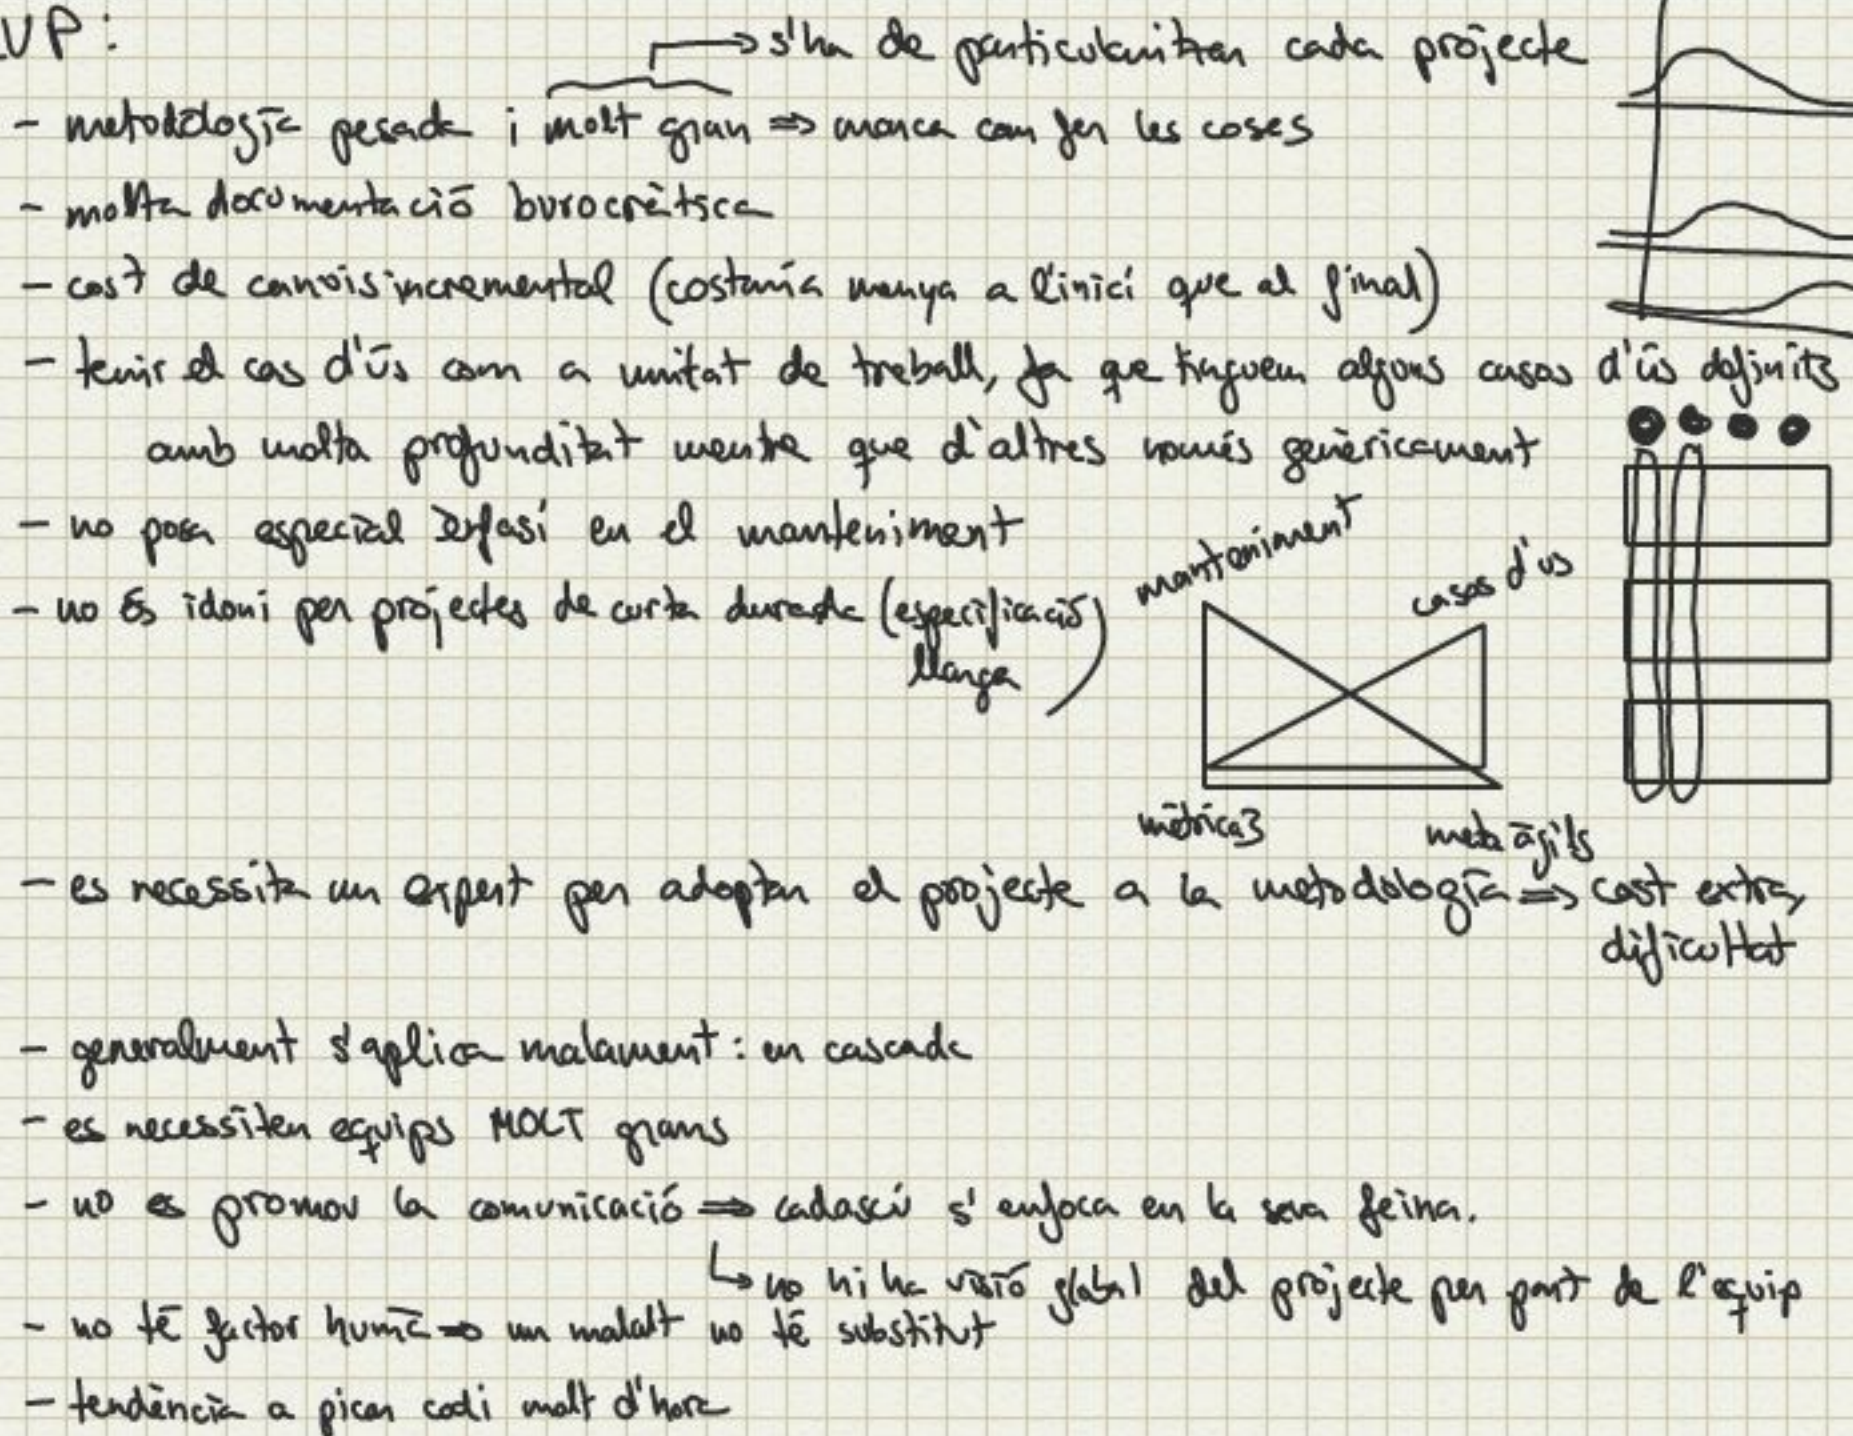 UP:
s'ha de particularitzar cada projecte
- metodologia pesada i molt gran ⇒ marca com fer les coses
- molta documentació burocràtica
- cost de canvis incremental (costaria menys a l'inici que al final)
- tenir el cas d'ús com a unitat de treball, fa que tinguem alguns casos d'ús definits
amb molta profunditat mentre que d'altres només genèricament
- no posa especial èmfasi en el manteniment
manteniment
casos d'us
- no és idoni per projectes de curta durada (especificació
llarga)
mètrica3
meto àgils
- es necessita un expert per adaptar el projecte a la metodologia ⇒ cost extra,
dificultat
- generalment s'aplica malament: en cascada
- es necessiten equips MOLT grans
- no es promou la comunicació ⇒ cadascú s'enfoca en la seva feina.
↳ no hi ha visió global del projecte per part de l'equip
- no té factor humà ⇒ un malalt no té substitut
- tendència a picar codi molt d'hora